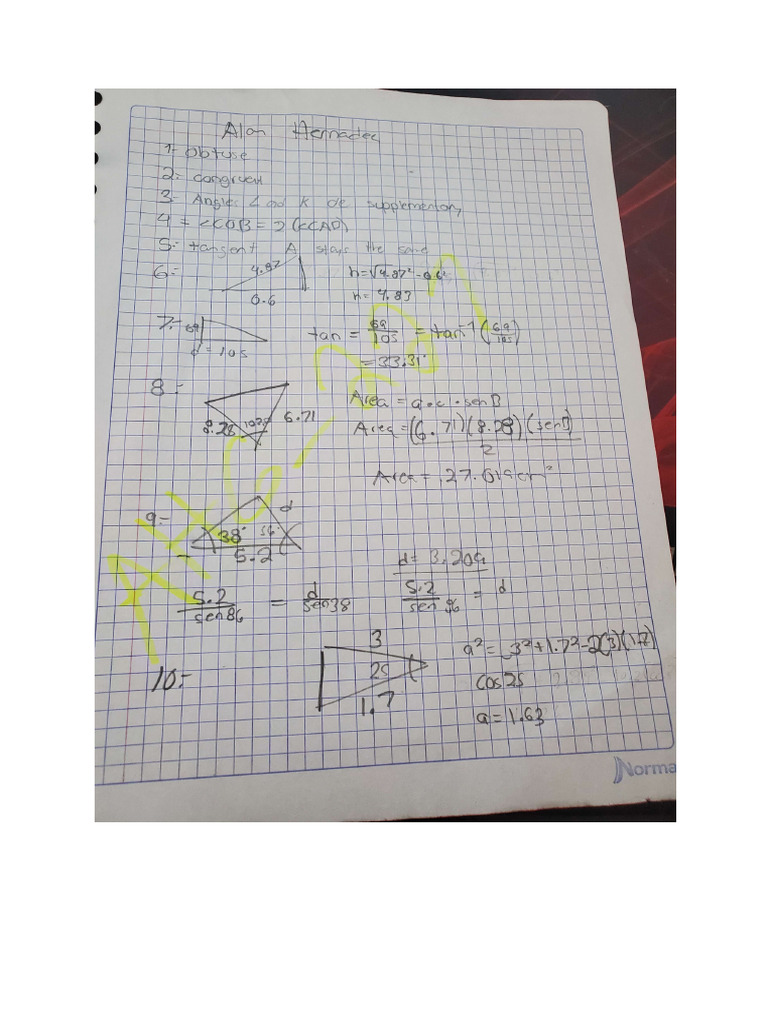 Alan Hernadec
1- Obtuse
2= congruent
3- Angles L and K are supplementary
4 = <COB = 2 (<CAD)
5.- tangent A stays the same
6.-
4.87
0.6
h=√4.87²-0.6²
h= 4.83
7.-
69
d=105
tan = 69/105 = tan⁻¹ (69/105)
=33.31°
8.-
8.28
6.71
Area = a·c·senB
Area = (6.71)(8.28)(senB)/2
Area = 27.619cm²
9.-
d
38° 56°
5.2
d= 3.209
5.2/sen86 = d/sen38
5.2/sen86 = d
10.-
3
25
1.7
a²= 3²+1.7²-2(3)(1.7)
cos25
a=1.63
Norma